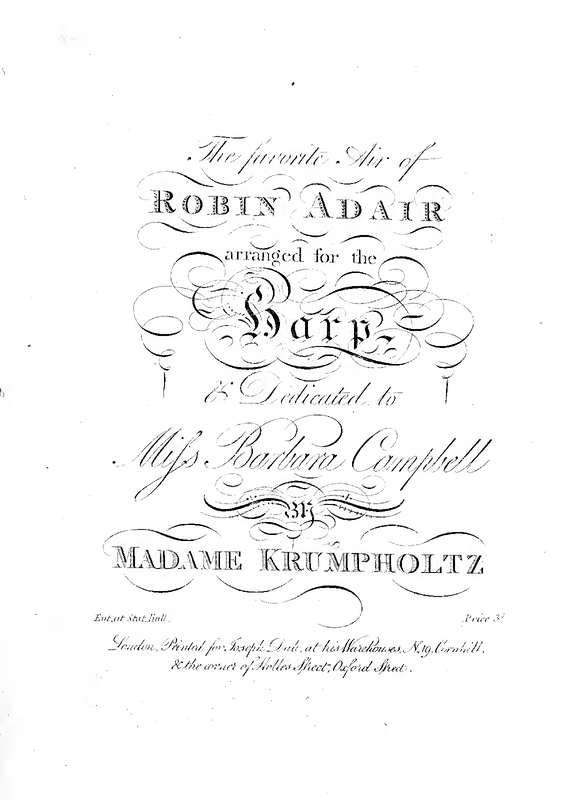 The favorite Air of
ROBIN ADAIR
arranged for the
Harp,
& Dedicated to
Miſs Barbara Campbell
BY
MADAME KRUMPHOLTZ
Ent. at Stat. Hall.
Price 3s.
London, Printed for Joseph Dale, at his Warehouses, No. 19, Cornhill,
& the corner of Holles Street, Oxford Street.